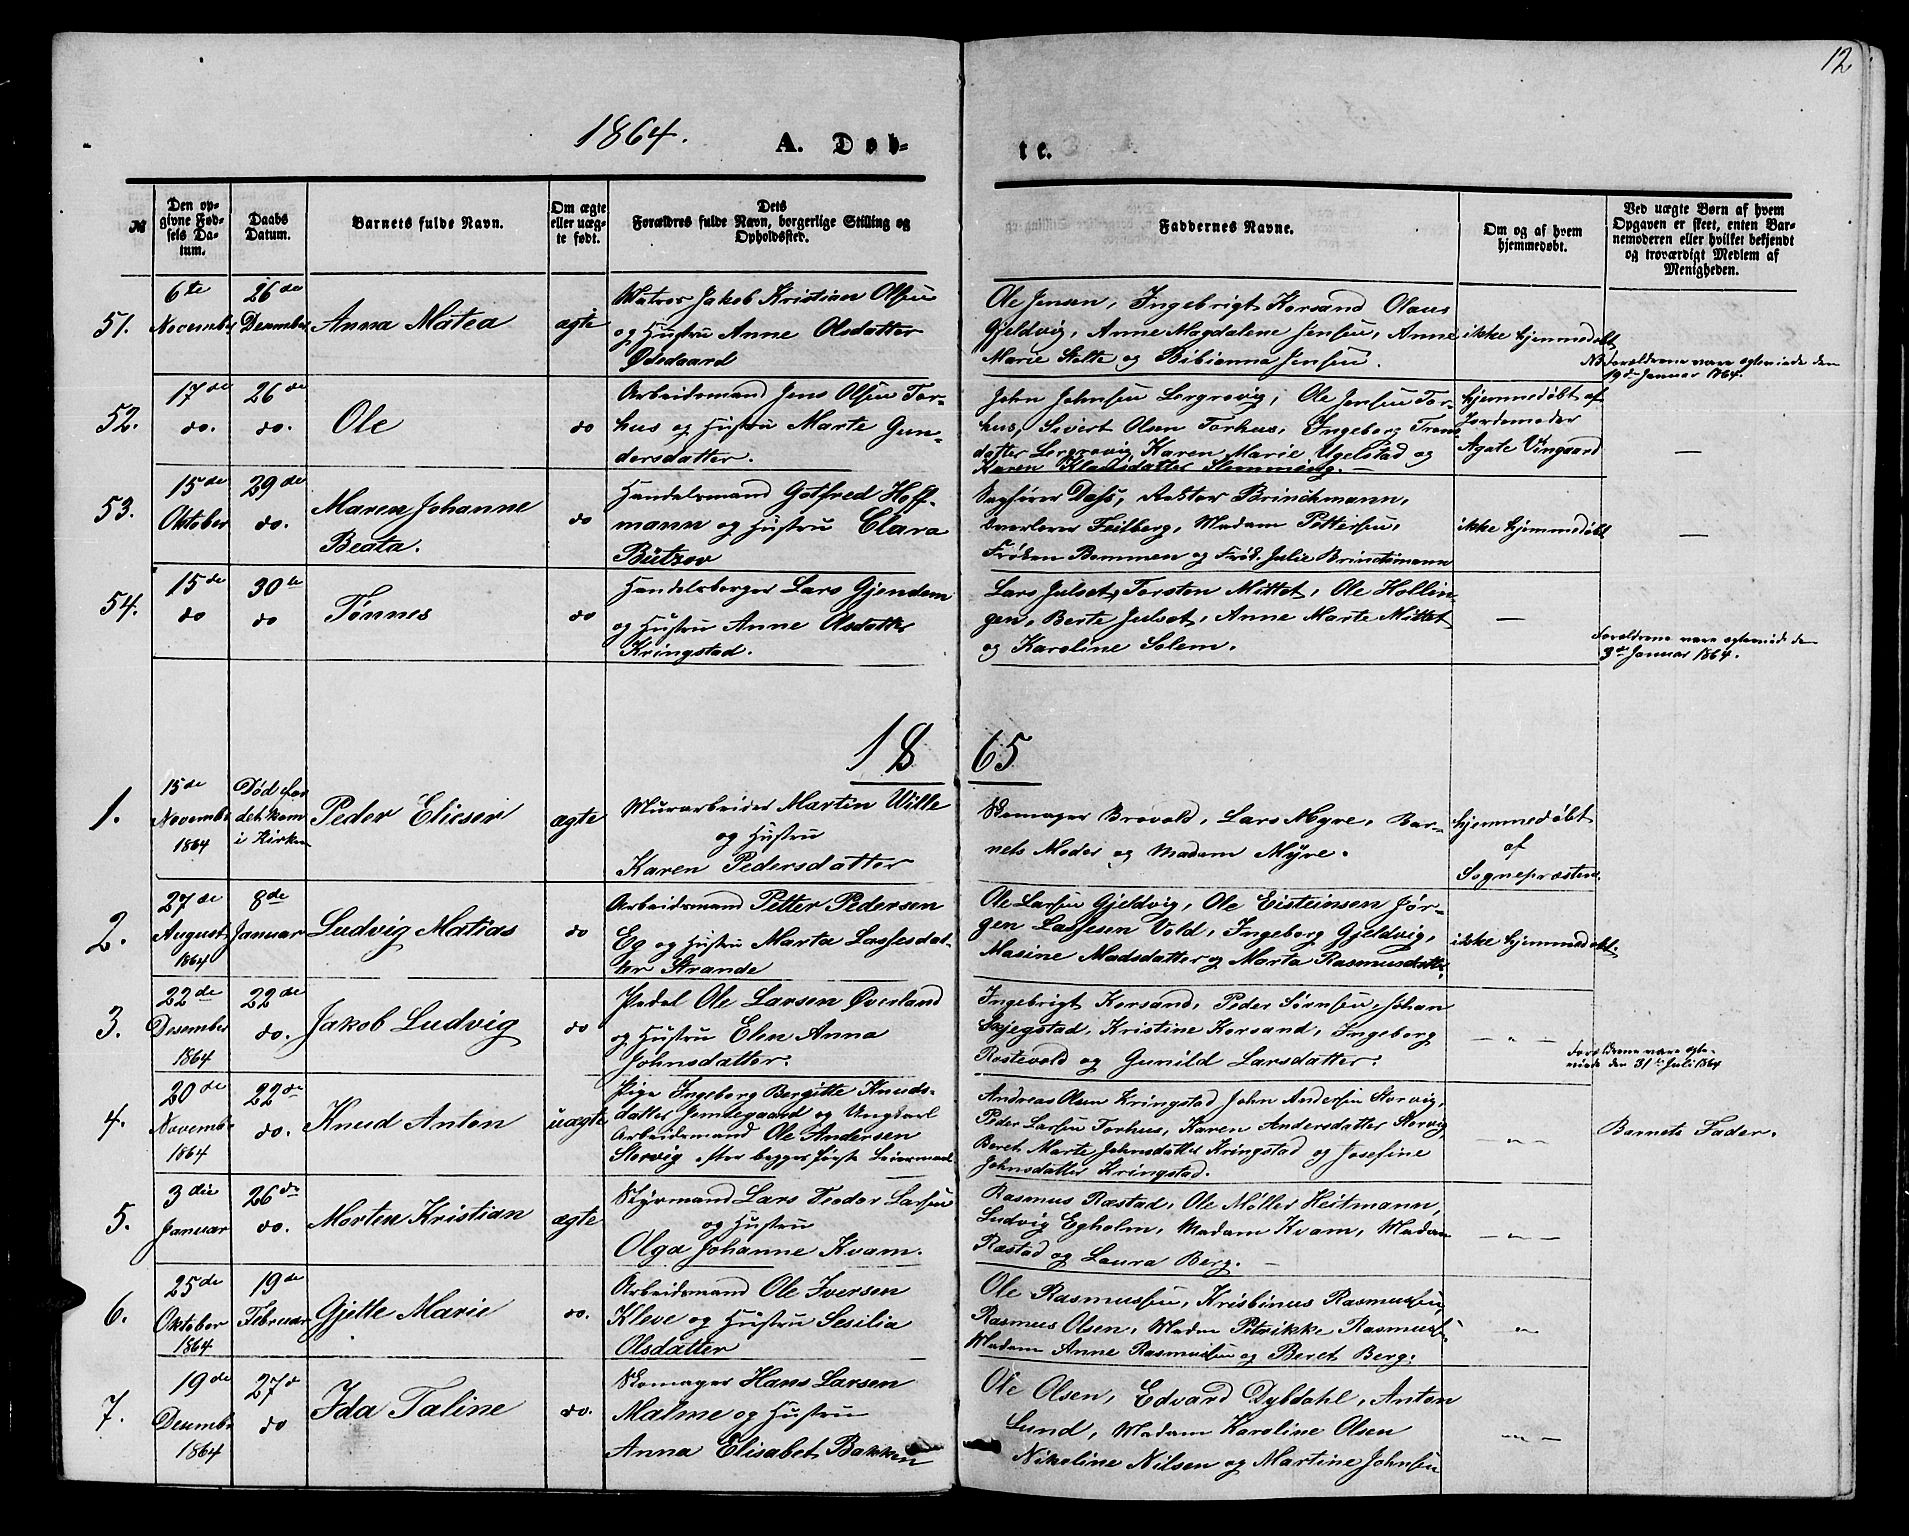 12
1864.
A. Døb-
te.
№
Den op-
givne Fød-
sels Da-
tum.
Daabs
Datum.
Barnets fulde Navn.
Om ægte
eller uæg-
te født.
Dets
Forældres fulde Navn, borgerlige Stilling og
Opholdssted.
Faddernes Navne.
Om og af hvem
hjemmedøbt.
Ved uægte Børn af hvem
Opgaven er skeet, enten Bar-
nemoderen eller hvilket bekjendt
og troværdigt Medlem af
Menigheden.
51.
6te
November
26de
Desember
Anna Matea
ægte
Matros Jakob Kristian Olsen
og Hustru Anne Olsdatter
Ødegaard
Ole Jensen, Ingebrigt Korsand Olaus
Gjeldvig, Anne Magdalene Jensen, Anne
Marie Holte og Bibianna Jensen.
ikke hjemmedøbt
NB. Forældrene vare egteviede den
19de Januar 1864.
52.
17de
do.
26de
do.
Ole
do
Arbeidsmand Jens Olsen Tor-
hus og Hustru Marte Gun-
dersdatter.
John Johnsen Lergrovig, Ole Jensen Tor-
hus, Sivert Olsen Torhus, Ingeborg Trons
datter Lergrovig, Karen Marie Ugelstad og
Karen Kladsdatter Slemmevig. —
hjemmedøbt af
Jordemoder
Agate Vingaard
—
53.
15de
Oktober
29de
do.
Maren Johanne
Beata.
do
Handelsmand Gotfred Hoff-
mann og Hustru Clara
Bützov
Sagfører Dass, Rektor Brinchmann,
Overlærer Feilberg, Madam Pettersen,
Frøken Bommen og Frøk. Julie Brinchmann
ikke hjemmedøbt
—
54.
15de
do
30te
do
Tønnes
do
Handelsborger Lars Gjendem
og Hustru Anne Olsdatter
Kringstad.
Lars Julset, Torsten Mittet, Ole Hollin-
gen, Berte Julset, Anne Marte Mittet
og Karoline Solem.
—
Forældrene vare egteviede den
3de Januar 1864.
1865
1.
15de
Novembr
1864
Død før
det kom
i Kirken
Peder Elieser
ægte
Murarbeider Martin Wille
og Hustru
Karen Pedersdatter
Skomager Brovold, Lars Myre, Bar-
nets Moder og Madam Myre.
hjemmedøbt
af
Sognepræsten.
2.
27de
August
1864
8de
Januar
Ludvig Matias
do
Arbeidsmand Petter Pedersen
Eg og Hustru Marta Lassesdat-
ter Strande
Ole Larsen Gjeldvig, Ole Eisteinsen Jør-
gen Lassesen Vold, Ingeborg Gjeldvig,
Masine Madsdatter og Marta Rasmusdatter
ikke hjemmedøbt.
3.
22de
Desember
1864
22de
do.
Jakob Ludvig
do
Pedel Ole Larsen Øverland
og Hustru Elen Anna
Johnsdatter.
Ingebrigt Korsand, Peder Sørnsen, Johan
Skjegstad, Kristine Korsand, Ingeborg
Rostevold og Gunild Larsdatter.
— „ —
Forældrene vare egte-
viede den 31te Juli 1864
4.
20de
Novembr
1864
22de
do.
Knud Anton
uægte
Pige Ingeborg Bergitte Knuds-
datter Jemtegaard og Ungkarl
Arbeidsmand Ole Andersen
Storvig efter begges første Leiermaal
Andreas Olsen Kringstad John Andersen Storvig,
Peder Larsen Torhus, Karen Andersdatter Storvig
Beret Marte Johnsdatter Kringstad og Josefine
Johnsdatter Kringstad.
— „ —
Barnets Fader.
5.
3die
Januar
26de
do.
Morten Kristian
ægte
Styrmand Lars Teodor Larsen
og Hustru
Olga Johanne Kvam.
Rasmus Ræstad, Ole Møller Heitmann,
Ludvig Egholm, Madam Kvam, Madam
Ræstad og Laura Berg. —
— „ —
6.
25de
Oktober
1864
19de
Februar
Gjette Marie
do.
Arbeidsmand Ole Iversen
Kleve og Hustru Sesilia
Olsdatter
Ole Rasmussen, Kristinus Rasmussen,
Rasmus Olsen, Madam Petrikke Rasmussen
Madam Anne Rasmussen og Beret Berg.
— „ —
7.
19de
Desembr
1864
27d
do
Ida Taline
do.
Skomager Hans Larsen
Malme og Hustru
Anna Elisabet Bakken
Ole Olsen, Edvard Dybdahl, Anton
Lund, Madam Karoline Olsen
Nikoline Nilsen og Martine Johnsen
— „ —